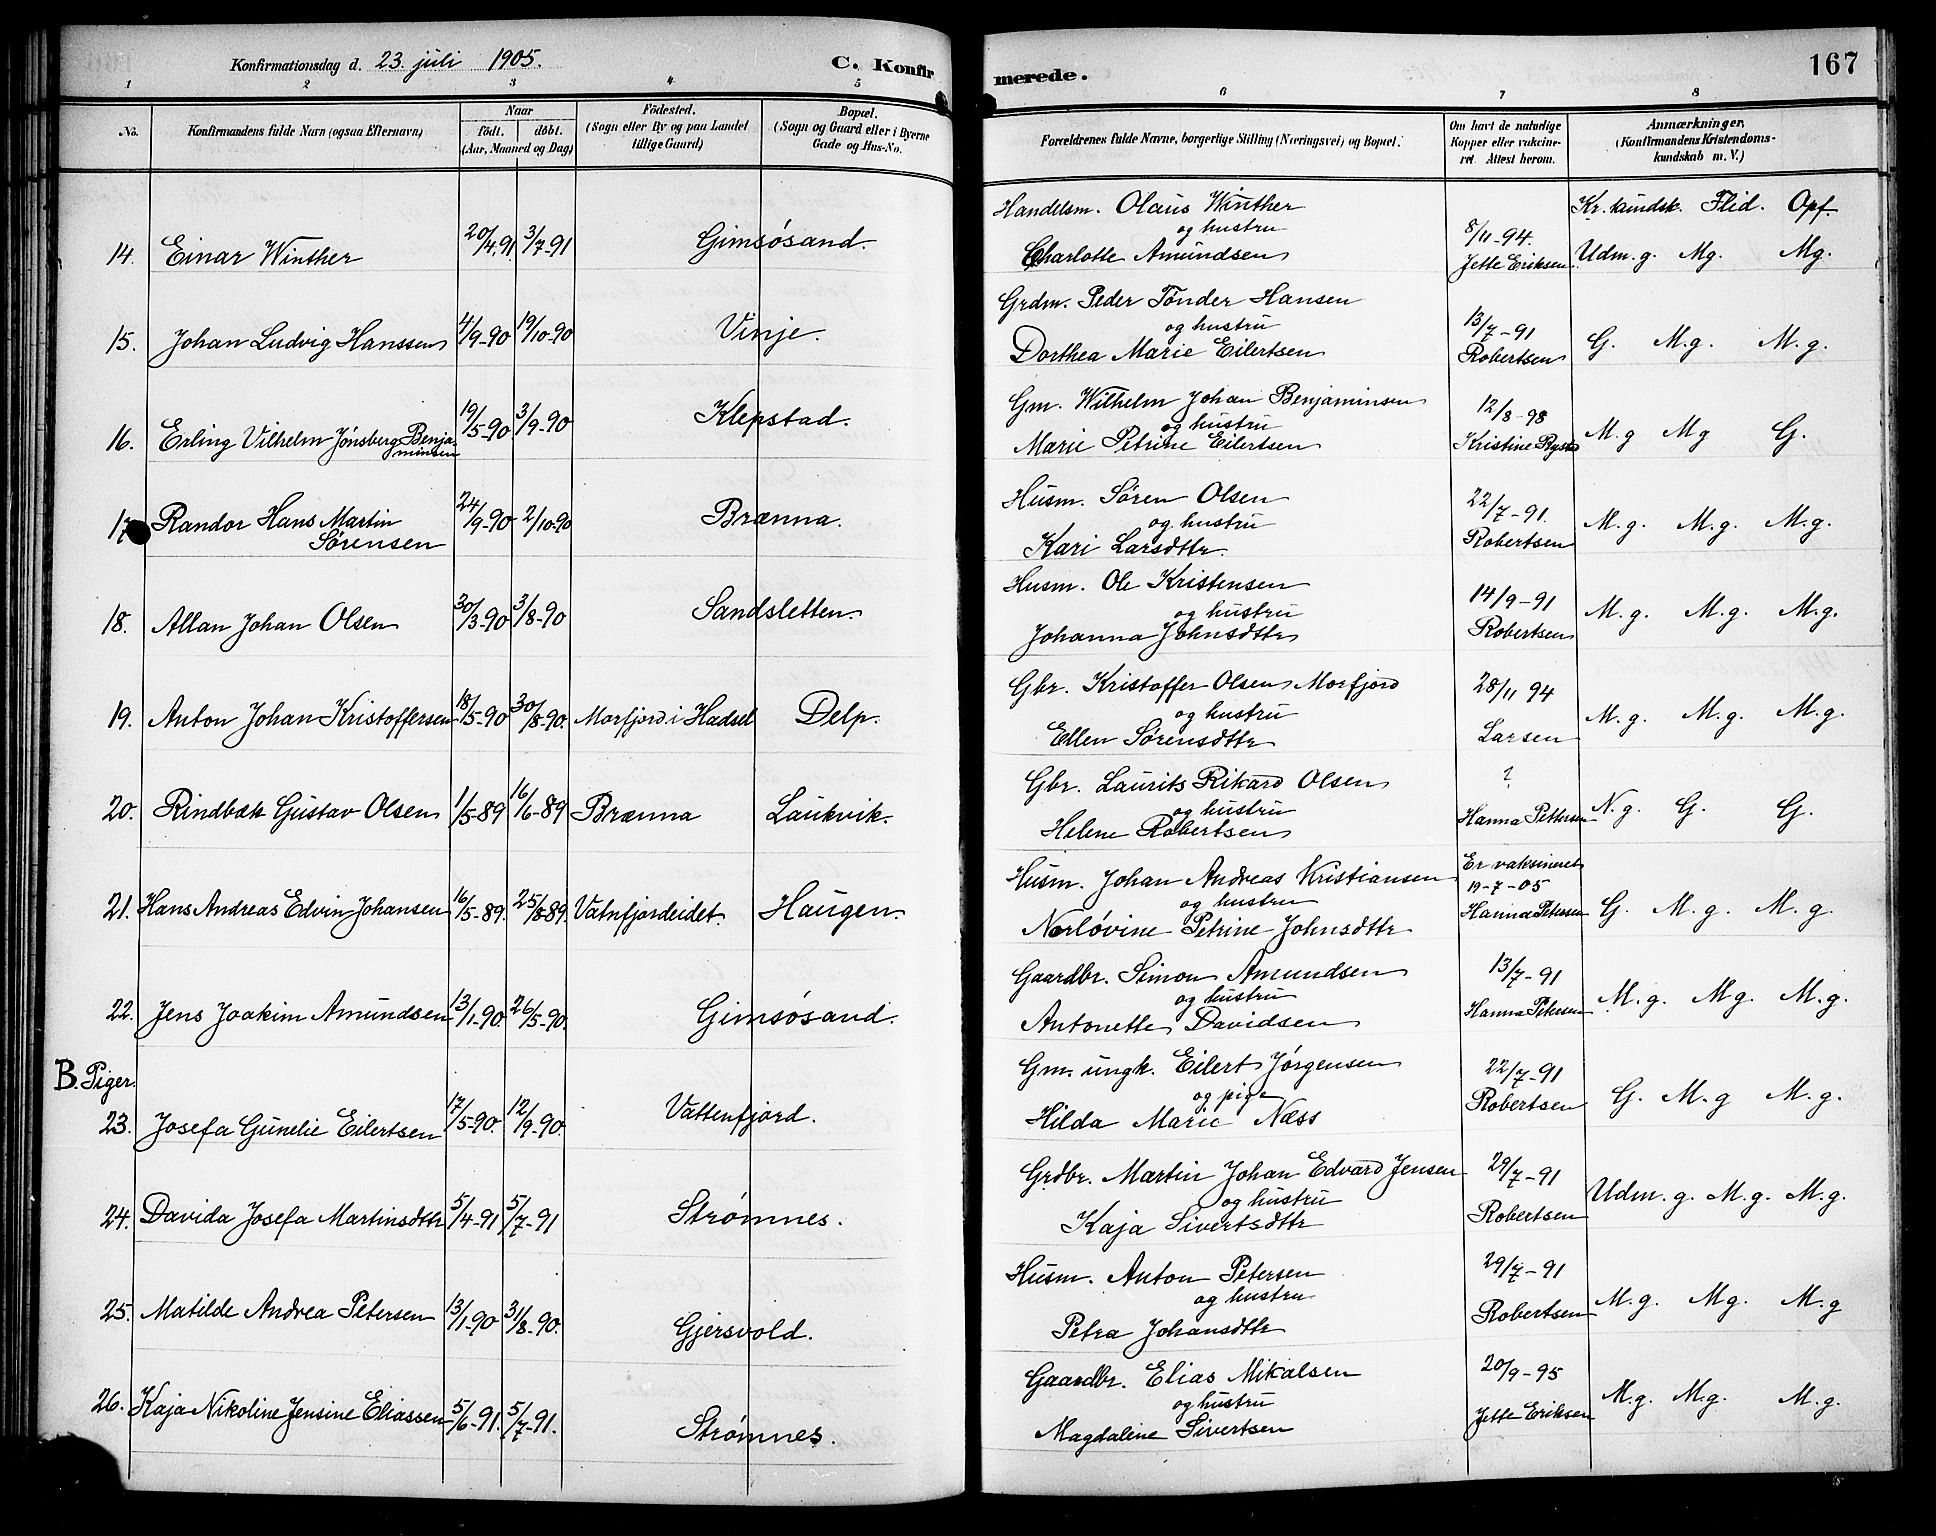 Konfirmationsdag d. 23. juli 1905. C. Konfirmerede. 167
1 2 3 4 5 6 7 8
No. Konfirmandens fulde Navn (ogsaa Efternavn) Naar født. døbt. (Aar, Maaned og Dag) Fødested. (Sogn eller By og paa Landet tillige Gaard) Bopæl. (Sogn og Gaard eller i Byerne Gade og Hus-No. Forældrenes fulde Navne, borgerlige Stilling (Næringsvei) og Bopæl. Om havt de naturlige Kopper eller vakcineret. Attest herom. Anmærkninger, (Konfirmandens Kristendomskundskab m. V.)
Kr. kundsk. Flid. Opf.
14. Einar Winther 20/4.91 3/7-91 Gimsøsand. Handelsm. Olaus Winther og hustru Charlotte Amundsen 8/11-94. Jette Eriksen. Udm. g. Mg. Mg.
15. Johan Ludvig Hanssen 4/9-90 19/10-90 Vinje. Grdm. Peder Tønder Hansen og hustru Dorthea Marie Eilertsen 13/7-91 Robertsen G. M.g. M.g.
16. Erling Vilhelm Jønsberg Benjaminsen 19/5-90 3/9-90 Klepstad. Gm. Wilhelm Johan Benjaminsen og hustru Marie Petrine Eilertsen 12/8-98 Kristine M.g Mg G.
17. Randor Hans Martin Sørensen 24/9-90 2/10-90 Brænna. Husm. Søren Olsen og hustru Kari Larsdttr. 22/7-91. Robertsen M.g. M.g. M.g.
18. Allan Johan Olsen 30/3-90 3/8-90 Sandsletten. Husm. Ole Kristensen og hustru Johanna Johnsdttr 14/9-91 Robertsen M.g. M.g. M.g.
19. Anton Johan Kristoffersen 18/5-90 30/8-90. Morfjord i Hadsel Delp. Gbr. Kristoffer Olsen Morfjord og hustru Ellen Sørensdttr 28/11 94 Larsen M.g. M.g. M.g.
20. Rindbæk Gustav Olsen 1/5-89 16/6-89 Brænna Laukvik. Gbr. Laurits Rikard Olsen og hustru Helene Robertsen ? Hanna Pettersen N.g. G. G.
21. Hans Andreas Edvin Johansen 16/5-89. 25/8-89. Vatnfjordeidet. Haugen. Husm. Johan Andreas Kristiansen og hustru Norløvine Petrine Johnsdttr Er vaksineret 19-7-05 Hanna Petersen G. M.g. M.g.
22. Jens Joakim Amundsen 13/1-90. 26/5-90. Gimsøsand. Gaardbr. Simon Amundsen og hustru Antonette Davidsen 13/7-91 Hanna Petersen M.g. Mg. M.g.
B. Piger.
23. Josefa Gunelie Eilertsen 17/5-90. 12/9-90. Vattenfjord. Gm. ungk. Eilert Jørgensen og pige Hilda Marie Næss 22/7-91 Robertsen G. M.g M.g.
24. Davida Josefa Martinsdttr 5/4-91 5/7-91 Strømnes. Grdbr. Martin Johan Edvard Jensen og hustru Kaja Sivertsdttr 29/7-91 Robertsen Udm. g. M.g. M.g.
25. Matilde Andrea Petersen 13/1-90 31/8-90. Gjersvold. Husm. Anton Petersen og hustru Petra Johansdttr 29/7-91 Robertsen M.g. Mg. M.g
26. Kaja Nikoline Jensine Eliassen 5/6-91. 5/7-91. Strømnes. Gaardbr. Elias Mikalsen og hustru Magdaline Sivertsen 20/9-95 Jette Eriksen M.g. M.g. M.g.